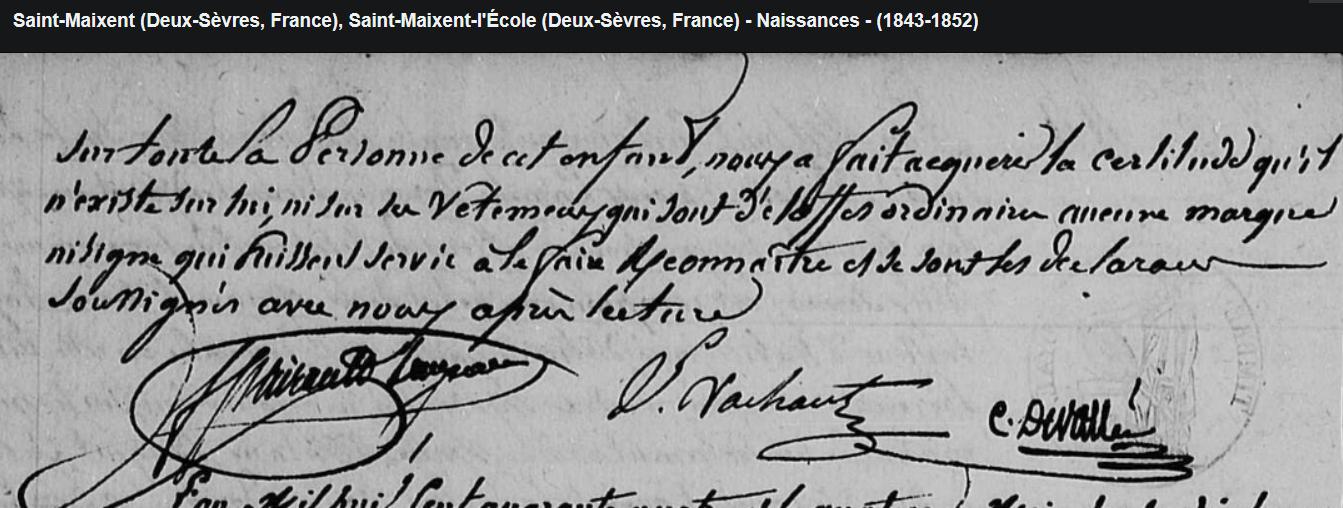 Saint-Maixent (Deux-Sèvres, France), Saint-Maixent-l'École (Deux-Sèvres, France) - Naissances - (1843-1852)
sur toute la Personne de cet enfant, nous a fait acquerir la certitude qu'il
n'existe sur lui, ni sur ses Vêtements qui sont d'étoffes ordinaires aucune marque
ni signe qui puissent servir à le faire Reconnaître et se sont les declarans
soussignés avec nous après lecture
V. Vachant
C. Devallée
L'an Mil huit Cent quarante